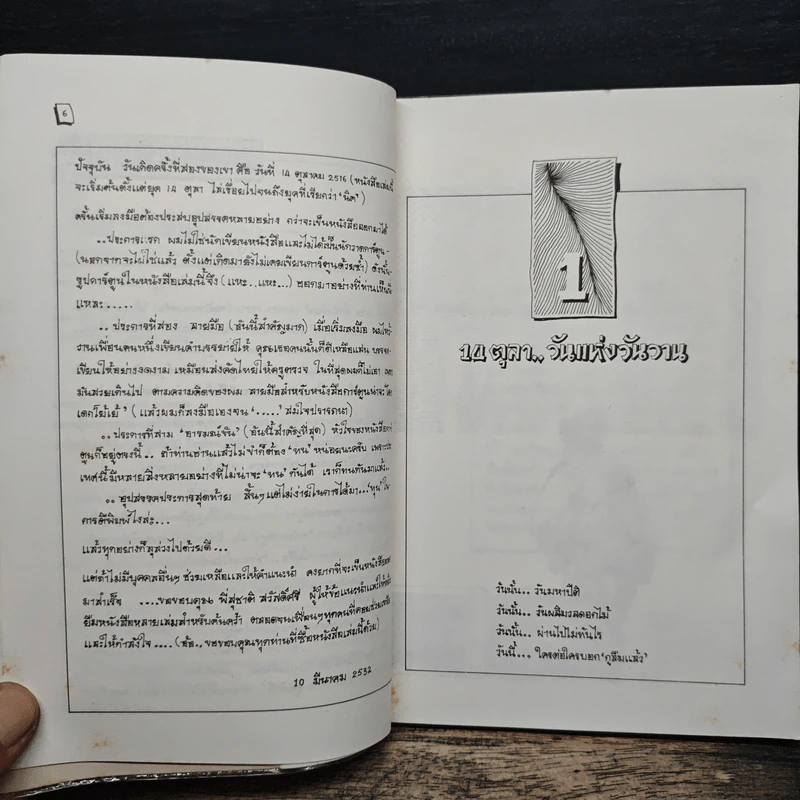 6
ปัจจุบัน วันเกิดครั้งที่สองของเขา คือ วันที่ 14 ตุลาคม 2516 (หนังสือเล่มนี้
จะเริ่มต้นตั้งแต่ยุค 14 ตุลา ไล่เรื่อยไปจนถึงยุคที่เรียกว่า 'นิค')
ครั้นเริ่มลงมือต้องประสบอุปสรรคหลายอย่าง กว่าจะเป็นหนังสือออกมาได้
..ประการแรก ผมไม่ใช่นักเขียนหนังสือและไม่ได้เป็นนักวาดการ์ตูน-
(นอกจากจะไม่ใช่แล้ว ตั้งแต่เกิดมายังไม่เคยเขียนการ์ตูนด้วยซ้ำ) ดังนั้น-
รูปการ์ตูนในหนังสือเล่มนี้จึง (แหะ..แหะ...) ออกมาอย่างที่ท่านเห็นนี่
แหละ.....
.. ประการที่สอง ลายมือ (อันนี้สำคัญมาก) เมื่อเริ่มลงมือ ผมไหว้
วานเพื่อนคนหนึ่งเขียนคำบรรยายให้ คุณเธอคนนั้นก็ดีเหลือแสน บรรจง
เขียนให้อย่างงดงาม เหมือนส่งคัดไทยให้ครูตรวจ ในที่สุดผมก็ไม่เอา เพราะ
มันสวยเกินไป ตามความคิดของผม ลายมือสำหรับหนังสือการ์ตูนน่าจะโด
เดกโย้เย้' (แล้วผมก็ลงมือเองจน '.....' สมใจปรารถนา)
.. ประการที่สาม 'อารมณ์ขัน' (อันนี้สำคัญที่สุด) หัวใจของหนังสือการ์
ตูนก็อยู่ตรงนี้.. ถ้าท่านอ่านแล้วไม่ขำก็ต้อง 'ทน' หน่อยนะครับ เพราะประ
เทศนี้มีหลายสิ่งหลายอย่างที่ไม่น่าจะ 'ทน' กันได้ เราก็ทนกันมาแล้ว..
.. อุปสรรคประการสุดท้าย สั้นๆ แต่ไม่ง่ายในการได้มา...'ทุน' ใน
การตีพิมพ์ไงล่ะ...
แล้วทุกอย่างก็ลุล่วงไปด้วยดี...
แต่ถ้าไม่มีบุคคลอื่นๆ ช่วยเหลือและให้คำแนะนำ คงยากที่จะเป็นหนังสือออก
มาสำเร็จ ....ขอขอบคุณ พี่สุชาติ สวัสดิ์ศรี ผู้ให้ข้อแนะนำและให้หยิบ
ยืมหนังสือหลายเล่มสำหรับค้นคว้า ตลอดจนเพื่อนๆ ทุกคนที่คอยช่วยเหลือ
และให้กำลังใจ ....(อ้อ.,ขอขอบคุณทุกท่านที่ซื้อหนังสือเล่มนี้ด้วย)
10 มีนาคม 2532
1
14 ตุลา.. วันแห่งวันวาน
วันนั้น.. วันมหาปิติ
วันนั้น.. วันผลิมวลดอกไม้
วันนั้น.. ผ่านไปไม่ทันไร
วันนี้... ใครต่อใครบอก 'กูลืมแล้ว'